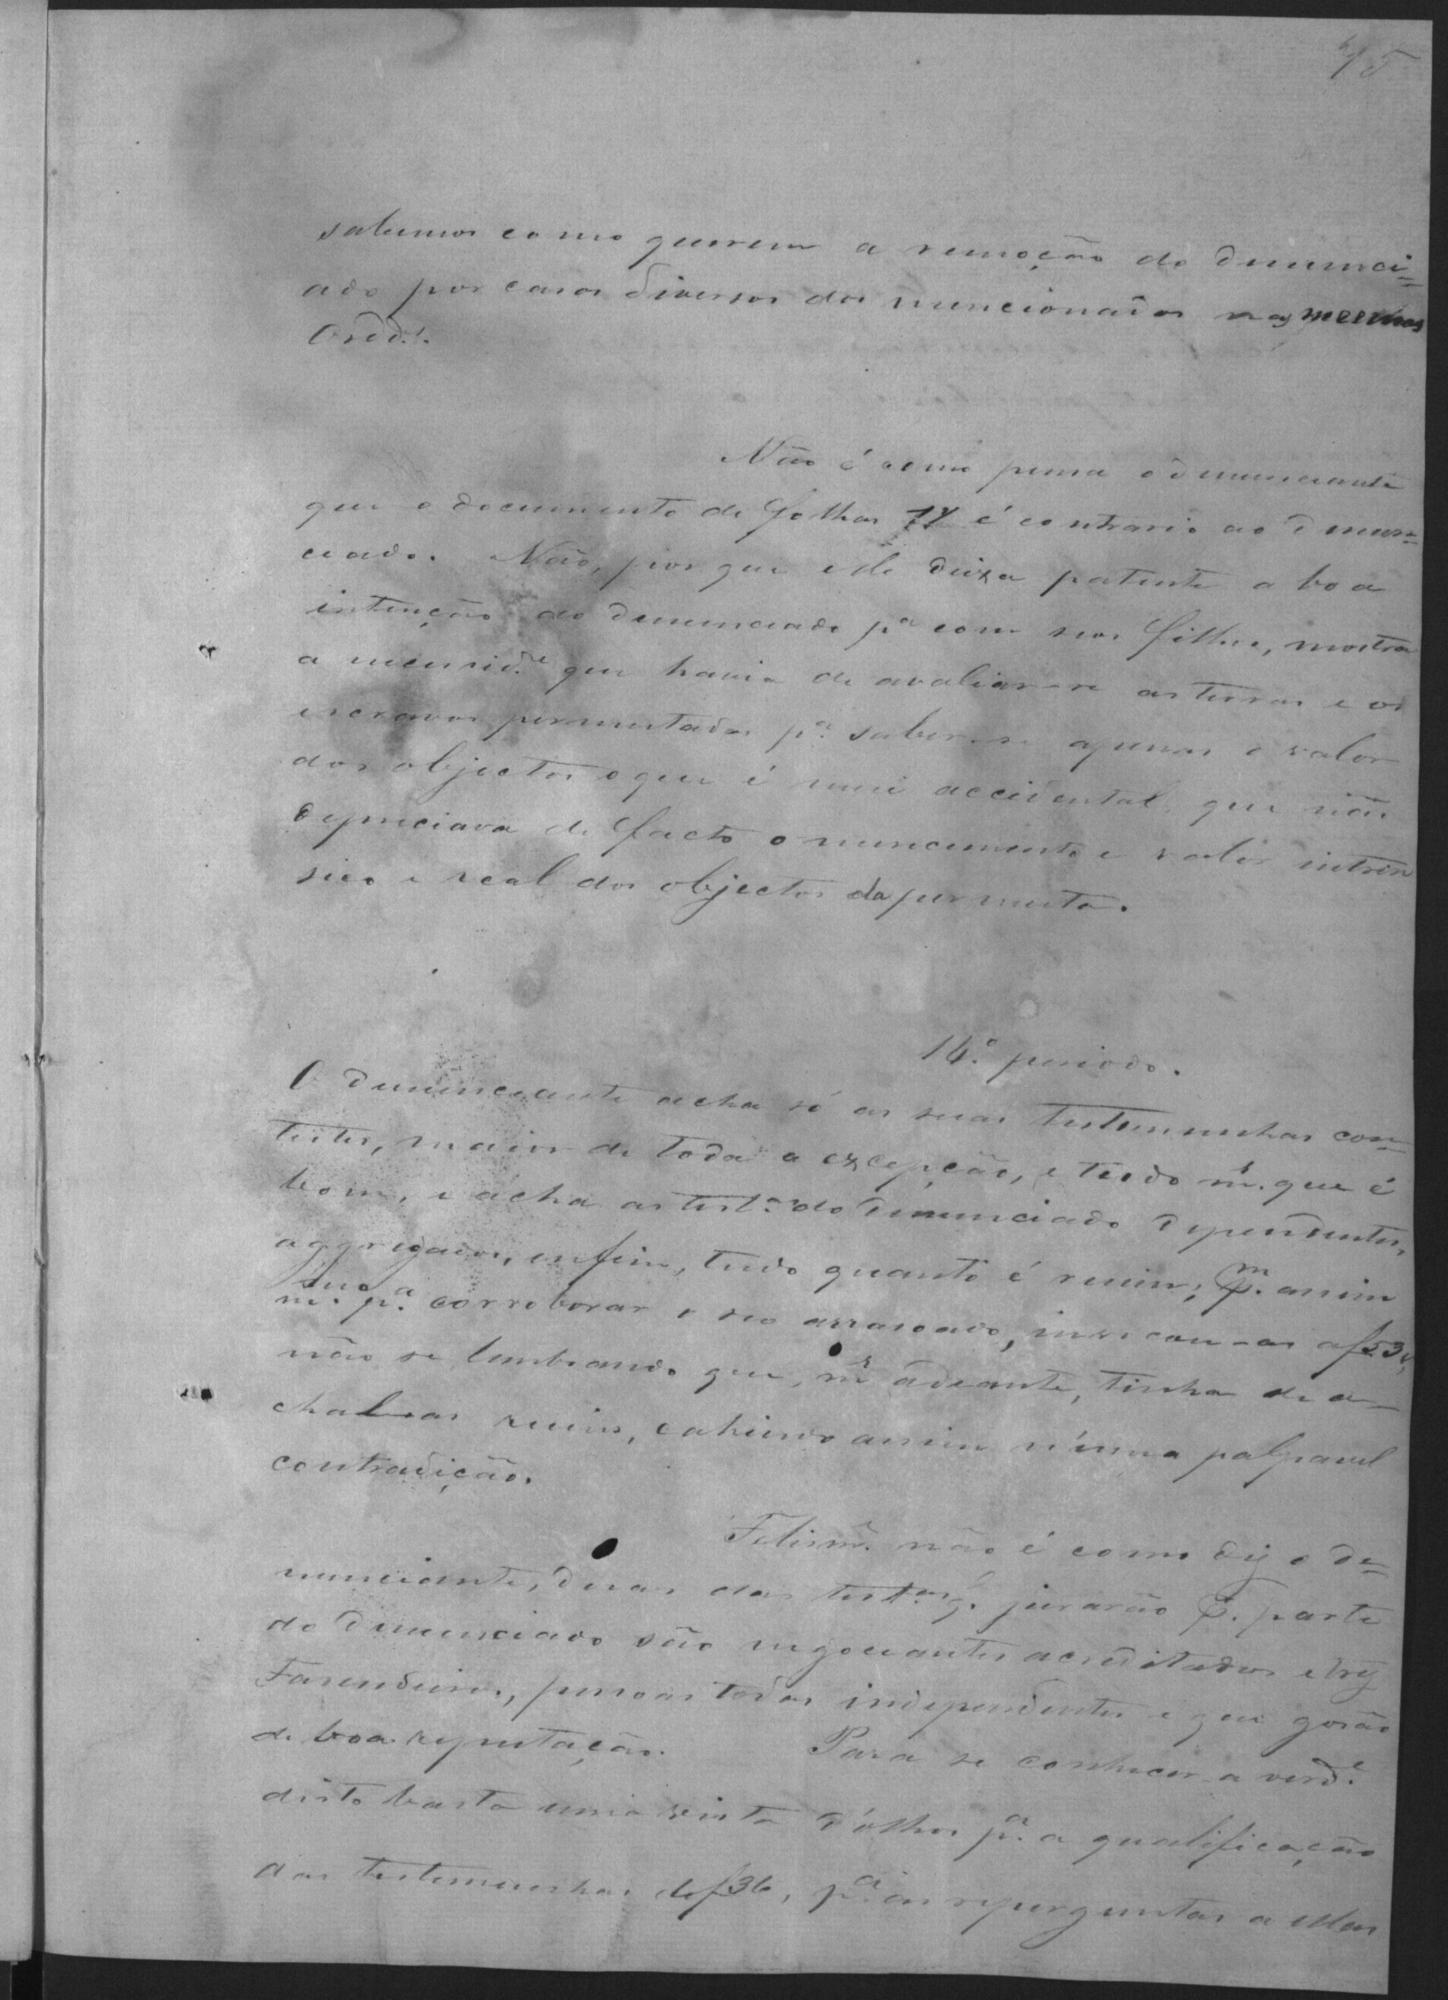 75
sabemos como querem a remoção do denunci-
ado por casos diversos dos mencionados nas mesmas
Ord.s.
Não é como pensa o denunciante
que o documento de folhas 14 é contrario ao denun-
ciado. Não, por que elle deixa patente a boa
intenção do denunciado p.a com seos filhos, mostra
a necessid.e que havia de avaliar-se as terras e os
escravos permutados p.a saber-se apenas o valor
dos objectos o que é mui accidental, que não
depreciava de facto o merecimento e valor intrin
sico e real dos objectos da permuta.
14.º periodo.
O denunciante acha só as suas testemunhas con-
testes, maior de toda a excepção, e tudo m.s que é
bom, e acha as test.as do denunciado dependentes,
aggregados, enfim, tudo quanto é ruim; p.m assim
m.mo p.a corroborar o seo arrasoado, invocou-as a f53v,
não se lembrando que, m.s adeante, tinha de a-
chal-as ruins, cahindo assim n'uma palpavel
contradição.
Felism.e não é como diz o de-
nunciante, duas das test.as q. jurarão p. parte
do denunciado são negociantes acreditados e trez
Fasendeiros, pessoas todas independentes e que gosão
de boa reputação. Para se conhecer a verd.e
disto basta uma vista d'olhos p.a a qualificação
das testemunhas de f36, p.a as reperguntas a ellas